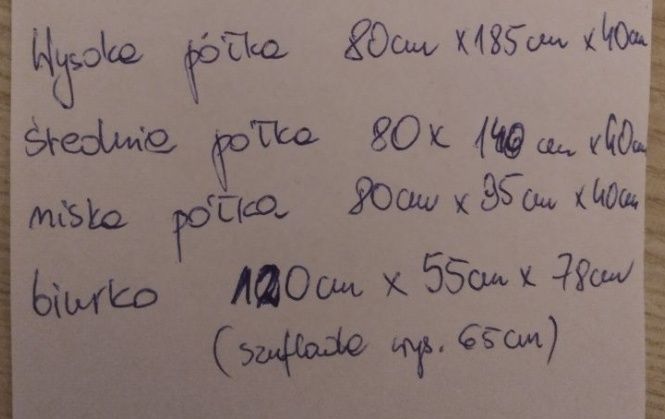 Wysoka półka 80cm x 185cm x 40cm
średnia półka 80 x 140 cm x 40cm
niska półka 80cm x 95cm x 40cm
biurko 120cm x 55cm x 78cm
(szuflada wys. 65cm)